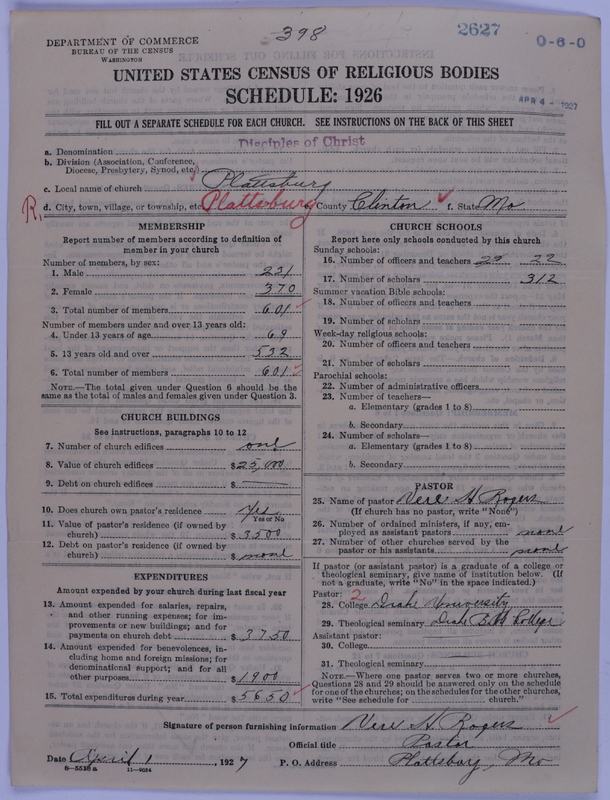 398
2627
0-6-0
DEPARTMENT OF COMMERCE
BUREAU OF THE CENSUS
WASHINGTON
UNITED STATES CENSUS OF RELIGIOUS BODIES
SCHEDULE: 1926
APR 4 - 1927
FILL OUT A SEPARATE SCHEDULE FOR EACH CHURCH. SEE INSTRUCTIONS ON THE BACK OF THIS SHEET
a. Denomination Disciples of Christ
b. Division (Association, Conference, Diocese, Presbytery, Synod, etc.)
c. Local name of church Plattsburg
R, d. City, town, village, or township, etc. Plattsburg County Clinton f. State Mo
MEMBERSHIP
Report number of members according to definition of
member in your church
Number of members, by sex:
1. Male 231
2. Female 370
3. Total number of members 601
Number of members under and over 13 years old:
4. Under 13 years of age 69
5. 13 years old and over 532
6. Total number of members 601
NOTE.—The total given under Question 6 should be the
same as the total of males and females given under Question 3.
CHURCH BUILDINGS
See instructions, paragraphs 10 to 12
7. Number of church edifices one
8. Value of church edifices $25,000
9. Debt on church edifices $
10. Does church own pastor's residence Yes
Yes or No
11. Value of pastor's residence (if owned by
church) $3500
12. Debt on pastor's residence (if owned by
church) $ none
EXPENDITURES
Amount expended by your church during last fiscal year
13. Amount expended for salaries, repairs,
and other running expenses; for im-
provements or new buildings; and for
payments on church debt $3750
14. Amount expended for benevolences, in-
cluding home and foreign missions; for
denominational support; and for all
other purposes $1900
15. Total expenditures during year $5650
CHURCH SCHOOLS
Report here only schools conducted by this church
Sunday schools:
16. Number of officers and teachers 22
17. Number of scholars 312
Summer vacation Bible schools:
18. Number of officers and teachers
19. Number of scholars
Week-day religious schools:
20. Number of officers and teachers
21. Number of scholars
Parochial schools:
22. Number of administrative officers
23. Number of teachers—
a. Elementary (grades 1 to 8)
b. Secondary
24. Number of scholars—
a. Elementary (grades 1 to 8)
b. Secondary
PASTOR
25. Name of pastor Vere H Rogers
(If church has no pastor, write "None")
26. Number of ordained ministers, if any, em-
ployed as assistant pastors none
27. Number of other churches served by the
pastor or his assistants none
If pastor (or assistant pastor) is a graduate of a college or
theological seminary, give name of institution below. (If
not a graduate, write "No" in the space indicated.)
Pastor: 2
28. College Drake University
29. Theological seminary Drake Bible College
Assistant pastor:
30. College
31. Theological seminary
NOTE.—Where one pastor serves two or more churches,
Questions 28 and 29 should be answered only on the schedule
for one of the churches; on the schedules for the other churches,
write "See schedule for church."
Signature of person furnishing information Vere H. Rogers
Official title Pastor
Date April 1, 1927 P. O. Address Plattsburg, Mo
8-5518a 11-9034